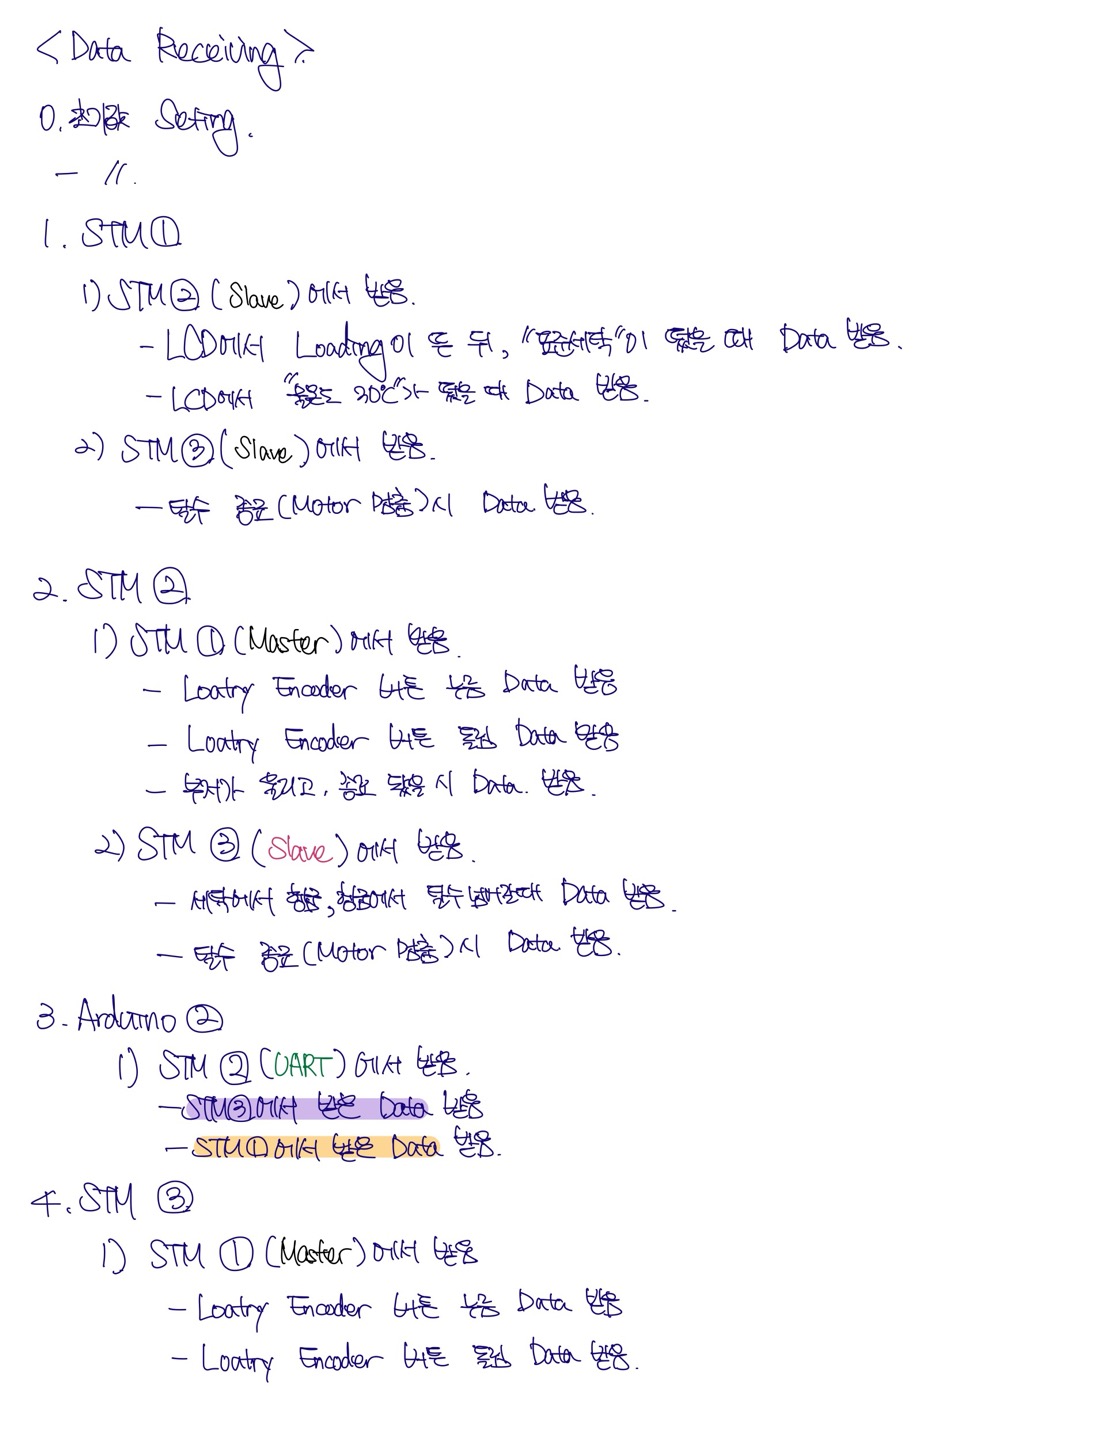 <Data Receiving>
0. 초기값 Seting.
- 〃.
1. STM①
1) STM②(Slave)에서 받음.
- LCD에서 Loading이 뜬 뒤, "표준세탁"이 떴을 때 Data 받음.
- LCD에서 "물온도 30℃"가 떴을 때 Data 받음.
2) STM③(Slave)에서 받음.
- 탈수 종료(Motor 멈춤)시 Data 받음.
2. STM②
1) STM①(Master)에서 받음.
- Loatry Encoder 버튼 누름 Data 받음
- Loatry Encoder 버튼 돌림 Data 받음
- 부저가 울리고, 종료 됐을 시 Data. 받음.
2) STM③(Slave)에서 받음.
- 세탁에서 헹굼, 헹굼에서 탈수 넘어갈때 Data 받음.
- 탈수 종료(Motor 멈춤)시 Data 받음.
3. Arduino②
1) STM②(UART)에서 받음.
- STM③에서 받은 Data 받음
- STM①에서 받은 Data 받음.
4. STM③
1) STM①(Master)에서 받음
- Loatry Encoder 버튼 누름 Data 받음
- Loatry Encoder 버튼 돌림 Data 받음.